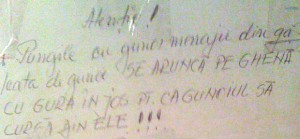 Atenție!
Pungile cu gunoi menajer din gă
leata de gunoi SE ARUNCĂ PE GHENĂ
CU GURA ÎN JOS PT. CA GUNOIUL SĂ
CURGĂ DIN ELE!!!